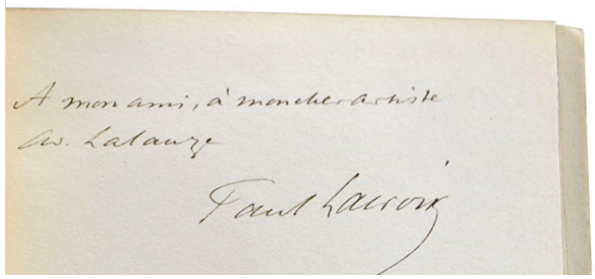 A mon ami, à mon cher artiste
Ad. Lalauze
Paul Lacroix